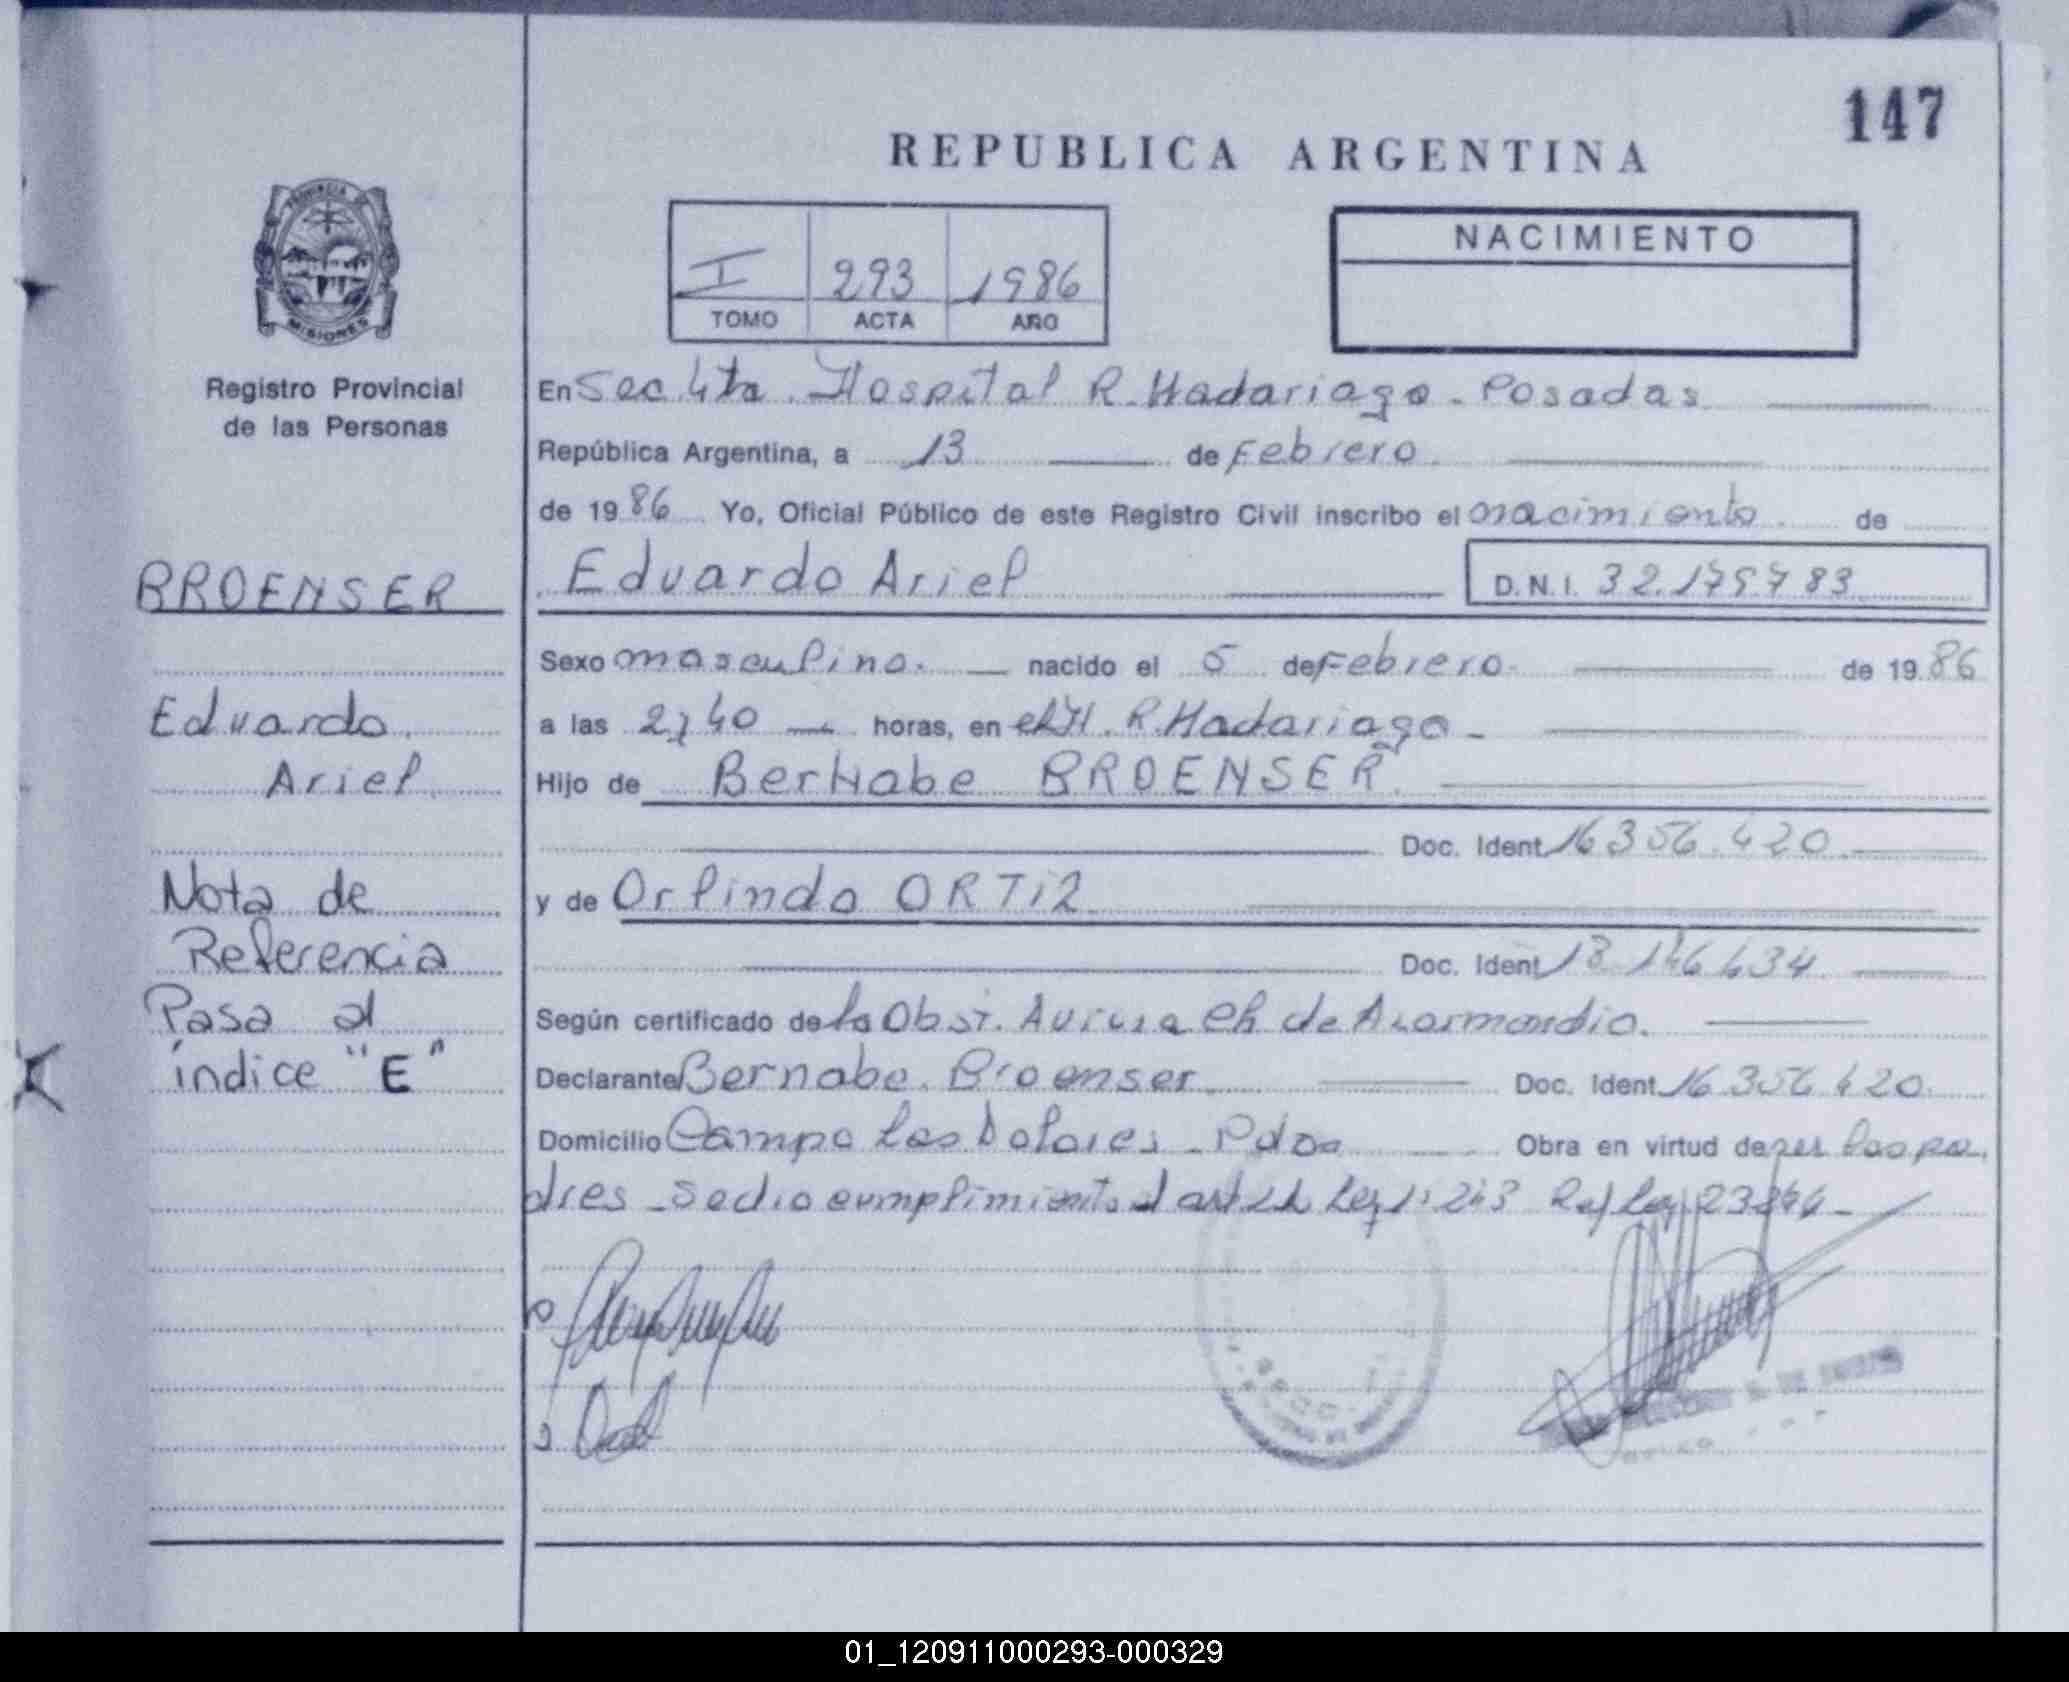 147
REPUBLICA ARGENTINA
PROVINCIA DE
MISIONES
I 293 1986
TOMO ACTA AÑO
NACIMIENTO
Registro Provincial
de las Personas
En Sec. 4ta. Hospital R. Madariaga - Posadas
República Argentina, a 13 de Febrero
de 1986 Yo, Oficial Público de este Registro Civil inscribo el nacimiento de
BROENSER
Eduardo Ariel D.N.I. 32.175.783
Sexo masculino. nacido el 5 de Febrero de 1986
Eduardo
a las 2,40 horas, en el H. R. Madariaga -
Ariel
Hijo de Bernabe BROENSER
Doc. Ident 16 356.420
Nota de
y de Orlinda ORTiZ
Referencia
Doc. Ident 18 146 634
Pasa al
Según certificado de la Obst. Ch de
índice "E"
Declarante Bernabe Broenser Doc. Ident 16 356 420
Domicilio Campo Las Dolores - Pdas Obra en virtud de ser los pa
dres - Se dio cumplimiento al art Ley 23
01_120911000293-000329